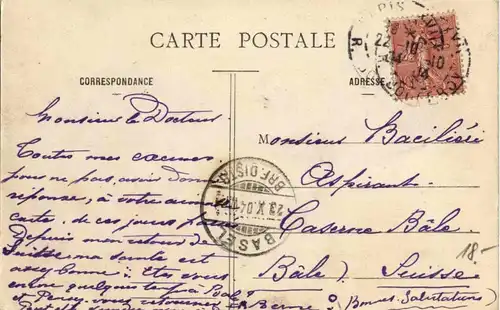 CARTE POSTALE
CORRESPONDANCE
ADRESSE
Monsieur le Docteur
Toutes mes excuses
pour ne pas avoir donné
réponse, à votre aimable
carte, de ces jours
Depuis mon retour de
Suisse ma santé est
assez bonne; Etes vous
encore quelques temps à Bâle?
et Pensez-vous retourner
à Berne?
(Bonnes Salutations)
Monsieur Baciliéri
Aspirant.
Caserne Bâle.
Bâle). Suisse
BASEL
BRF. DISTR.
23.X.04
22
10
04
18-